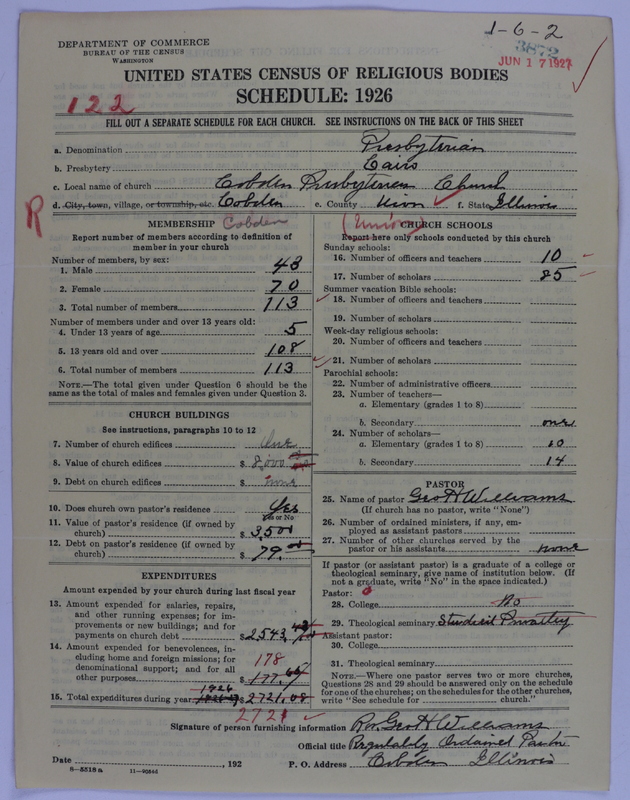 1-6-2
DEPARTMENT OF COMMERCE
BUREAU OF THE CENSUS
WASHINGTON
3672
JUN 17 1927
UNITED STATES CENSUS OF RELIGIOUS BODIES
SCHEDULE: 1926
122
FILL OUT A SEPARATE SCHEDULE FOR EACH CHURCH. SEE INSTRUCTIONS ON THE BACK OF THIS SHEET
a. Denomination Presbyterian
b. Presbytery Cairo
c. Local name of church Cobden Presbyterian Church
d. City, town, village, or township, etc. Cobden e. County Union f. State Illinois
R
MEMBERSHIP Cobden
Report number of members according to definition of
member in your church
Number of members, by sex:
1. Male 43
2. Female 70
3. Total number of members 113
Number of members under and over 13 years old:
4. Under 13 years of age 5
5. 13 years old and over 108
6. Total number of members 113
NOTE.—The total given under Question 6 should be the
same as the total of males and females given under Question 3.
CHURCH BUILDINGS
See instructions, paragraphs 10 to 12
7. Number of church edifices One
8. Value of church edifices $ 8,000
9. Debt on church edifices $ none
10. Does church own pastor's residence Yes
Yes or No
11. Value of pastor's residence (if owned by
church) $
12. Debt on pastor's residence (if owned by
church) $ 79.
EXPENDITURES
Amount expended by your church during last fiscal year
13. Amount expended for salaries, repairs,
and other running expenses; for im-
provements or new buildings; and for
payments on church debt $ 2543.
14. Amount expended for benevolences, in-
cluding home and foreign missions; for
denominational support; and for all
other purposes $ 177.
178
1926
15. Total expenditures during year $ 2721.08
2721
(Union)
CHURCH SCHOOLS
Report here only schools conducted by this church
Sunday schools:
16. Number of officers and teachers 10
17. Number of scholars 85
Summer vacation Bible schools:
18. Number of officers and teachers
19. Number of scholars
Week-day religious schools:
20. Number of officers and teachers
21. Number of scholars
Parochial schools:
22. Number of administrative officers
23. Number of teachers—
a. Elementary (grades 1 to 8)
b. Secondary one
24. Number of scholars—
a. Elementary (grades 1 to 8) 10
b. Secondary 14
PASTOR
25. Name of pastor Geo H Williams
(If church has no pastor, write "None")
26. Number of ordained ministers, if any, em-
ployed as assistant pastors
27. Number of other churches served by the
pastor or his assistants none
If pastor (or assistant pastor) is a graduate of a college or
theological seminary, give name of institution below. (If
not a graduate, write "No" in the space indicated.)
Pastor:
28. College No
29. Theological seminary Studied Privately
Assistant pastor:
30. College
31. Theological seminary
NOTE.—Where one pastor serves two or more churches,
Questions 28 and 29 should be answered only on the schedule
for one of the churches; on the schedules for the other churches,
write "See schedule for church."
Signature of person furnishing information Rev. Geo H Williams
Official title Regularly Ordained Pastor
Date , 192 P. O. Address Cobden Illinois
8—5518a 11—9054d